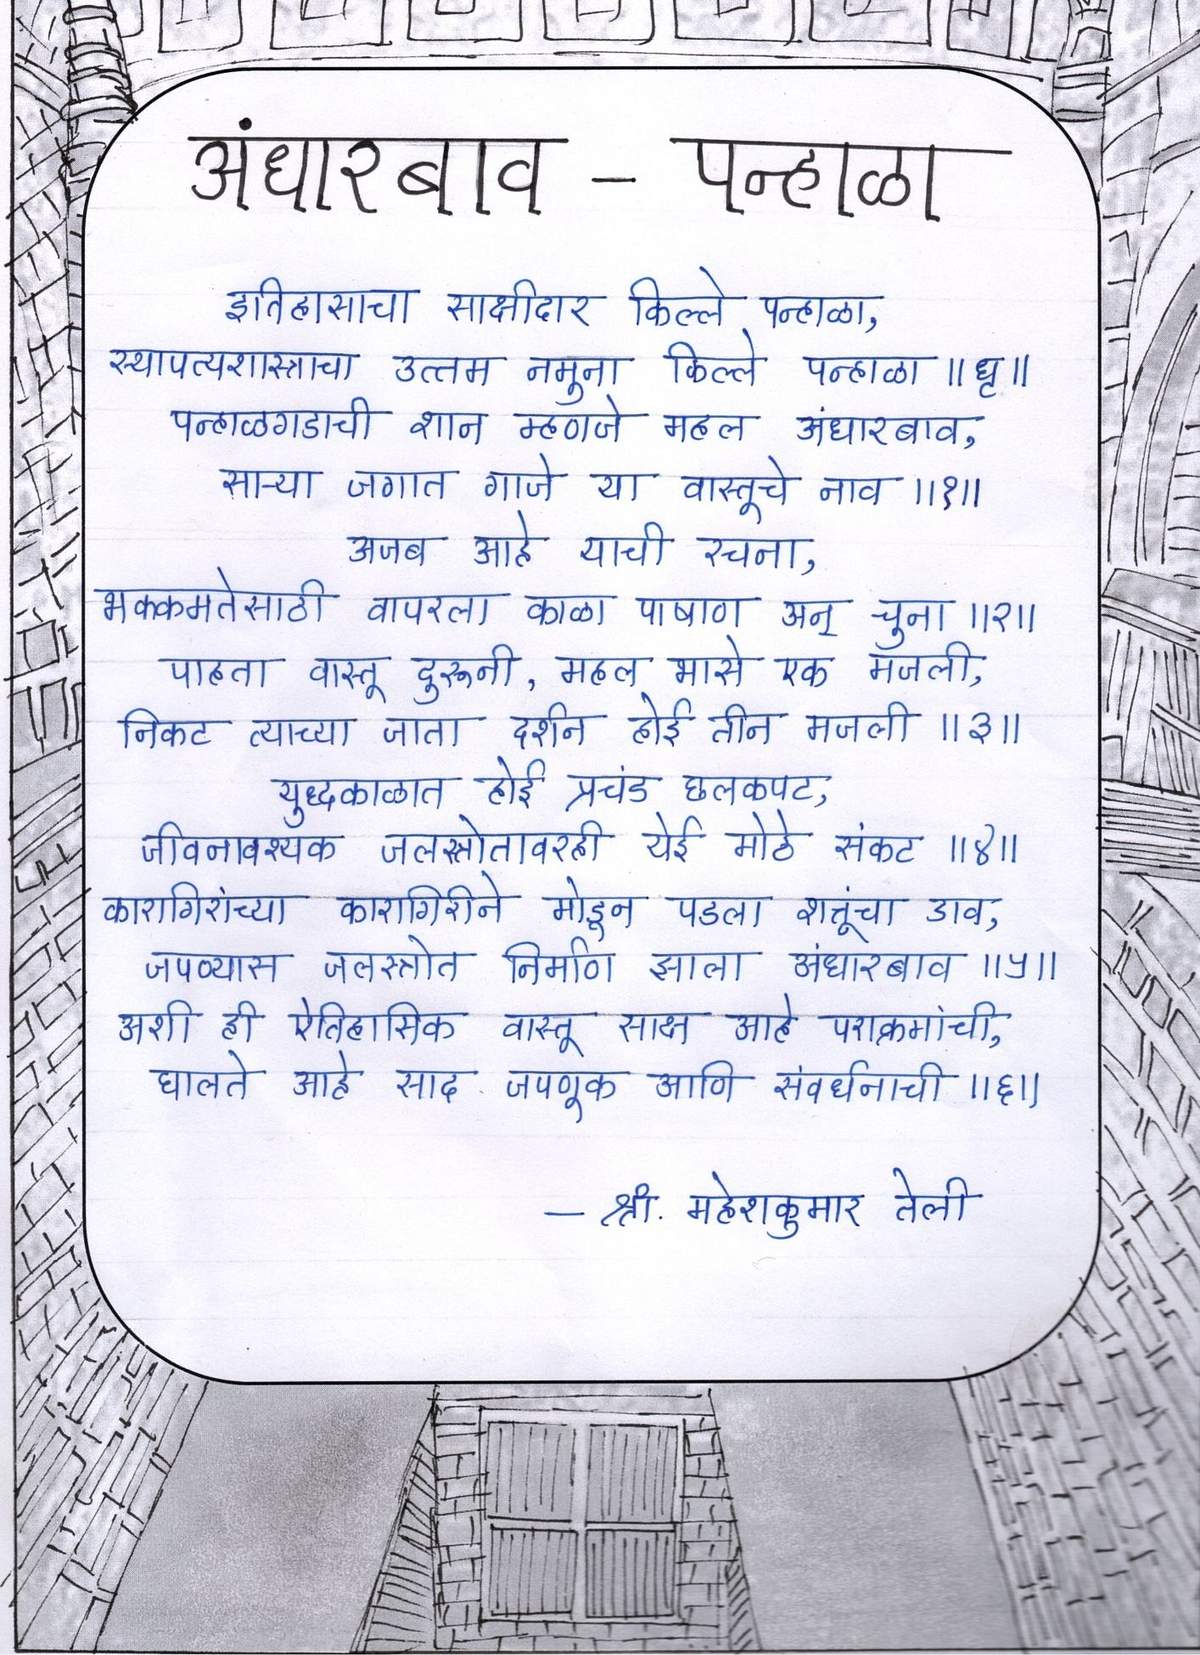 अंधारबाव - पन्हाळा
इतिहासाचा साक्षीदार किल्ले पन्हाळा,
स्थापत्यशास्त्राचा उत्तम नमुना किल्ले पन्हाळा ॥धृ॥
पन्हाळगडाची शान म्हणजे महल अंधारबाव,
साऱ्या जगात गाजे या वास्तूचे नाव ॥१॥
अजब आहे याची रचना,
भक्कमतेसाठी वापरला काळा पाषाण अन् चुना ॥२॥
पाहता वास्तू दुरूनी, महल भासे एक मजली,
निकट त्याच्या जाता दर्शन होई तीन मजली ॥३॥
युद्धकाळात होई प्रचंड छलकपट,
जीवनावश्यक जलस्त्रोतावरही येई मोठे संकट ॥४॥
कारागिरांच्या कारागिरीने मोडून पडला शत्रूंचा डाव,
जपण्यास जलस्त्रोत निर्माण झाला अंधारबाव ॥५॥
अशी ही ऐतिहासिक वास्तू साक्ष आहे पराक्रमांची,
घालते आहे साद जपणूक आणि संवर्धनाची ॥६॥
- श्री. महेशकुमार तेली